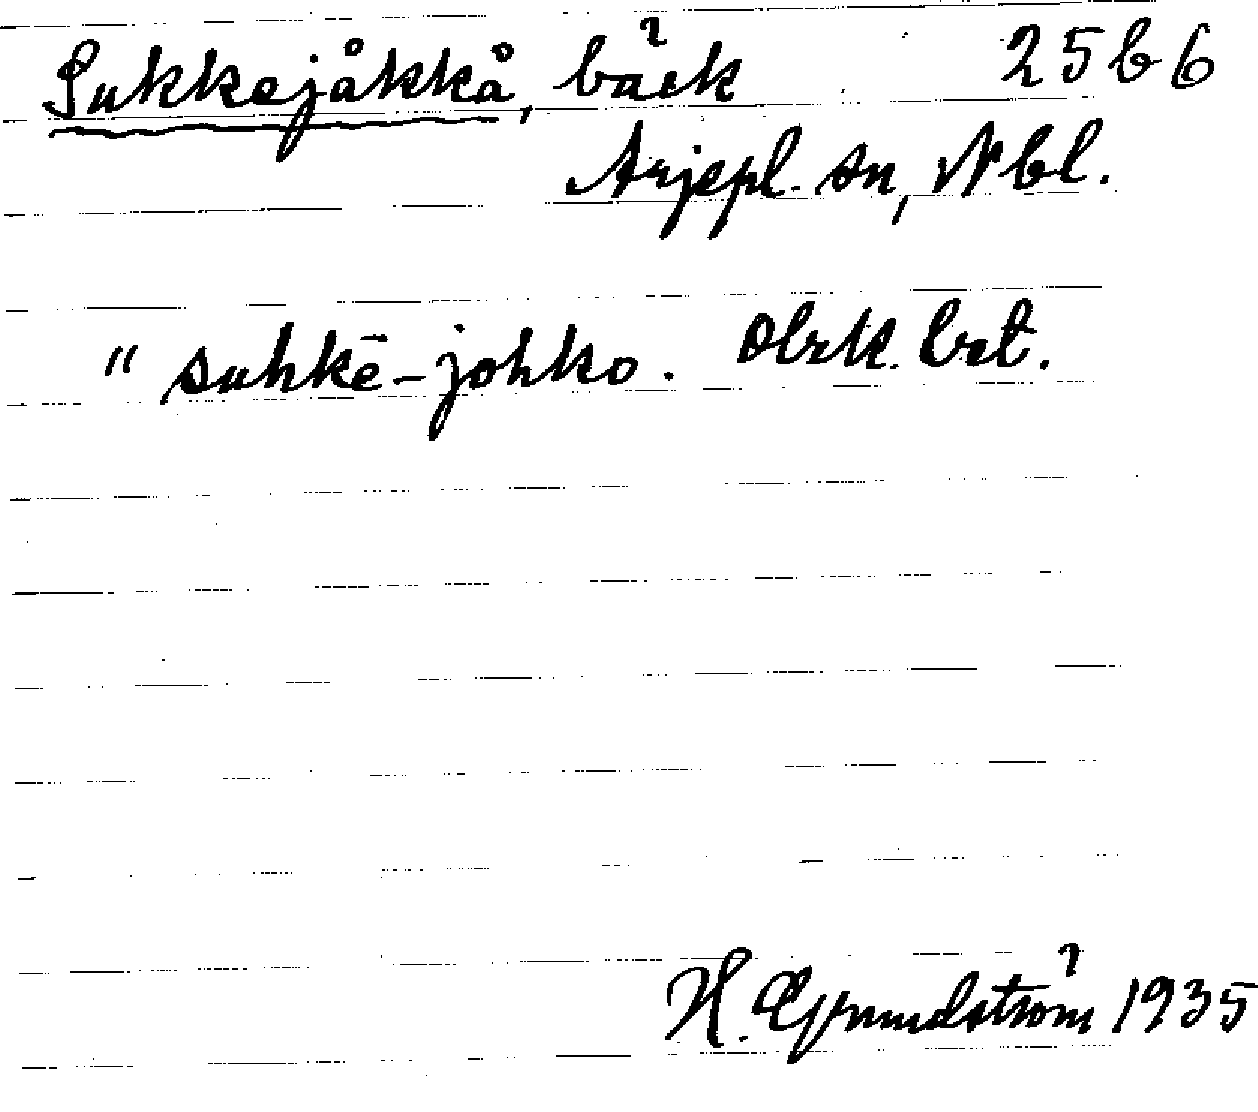 Sukkejåkkå, bäck 25b6
Arjepl. sn, Nbl.
" suhkē-johko. Obrk. brt.
H. Grundström 1935